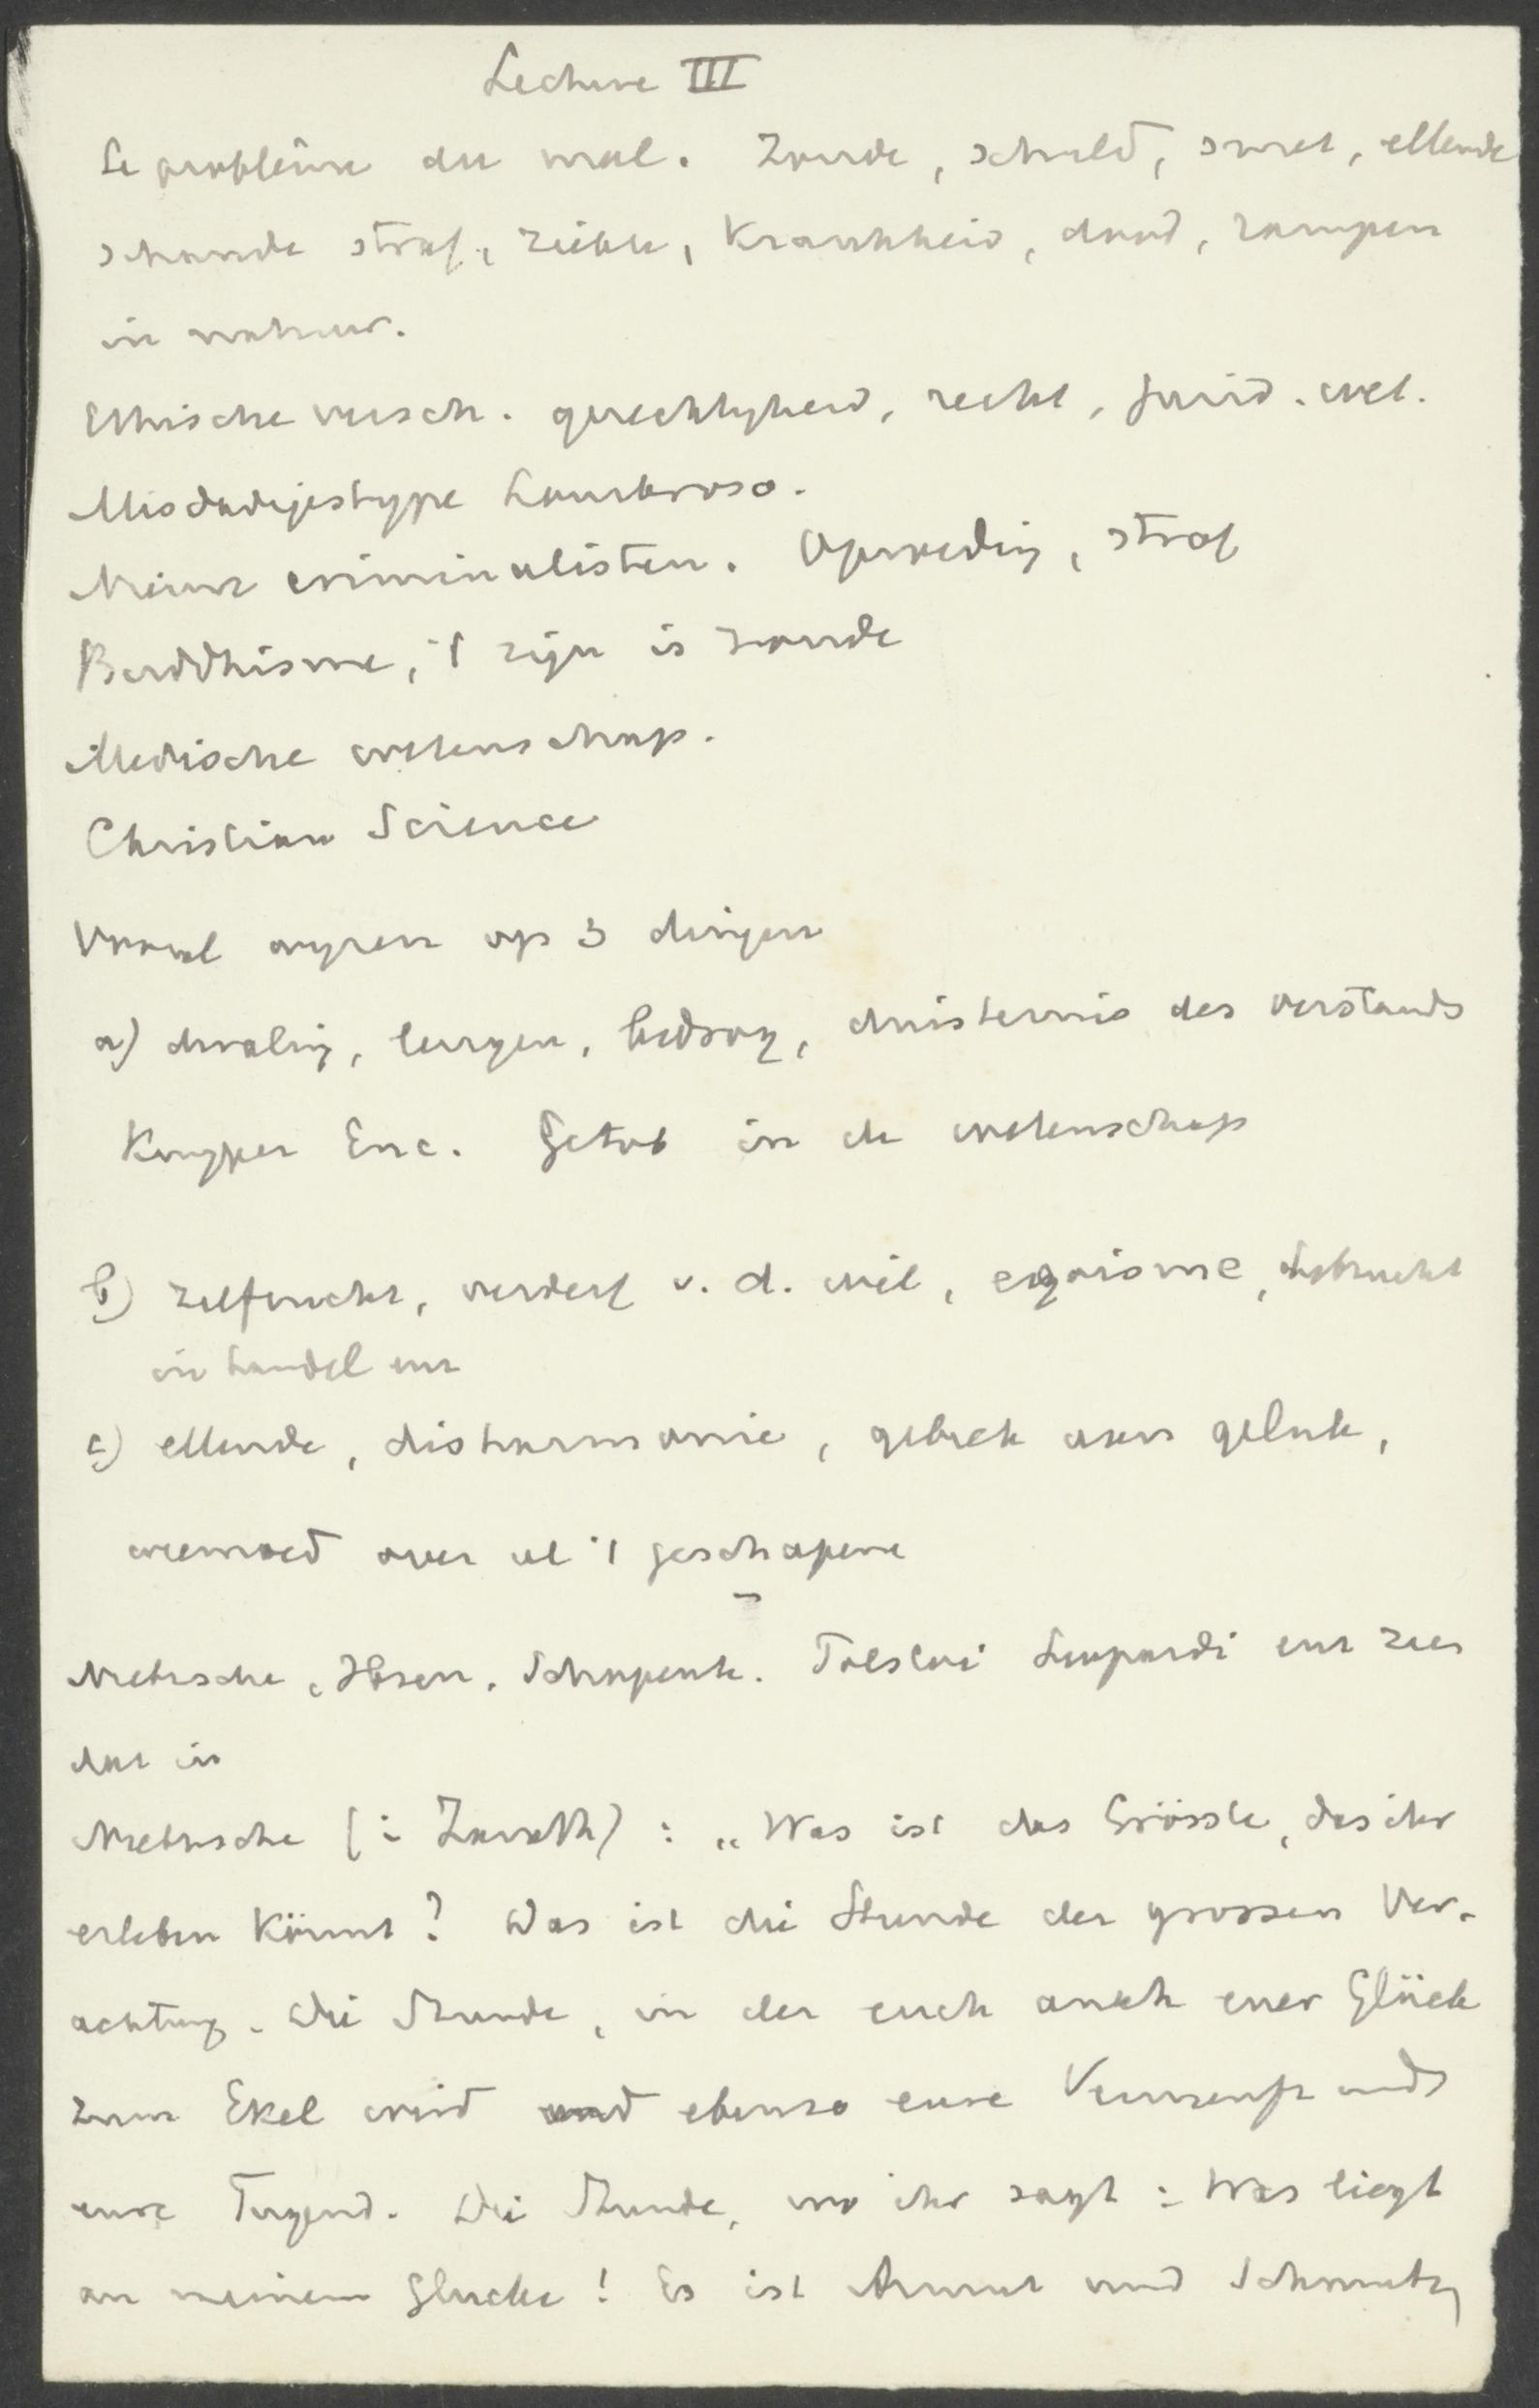 Lecture III
Le problème du mal. Zonde, schuld, smet, ellende
schande straf, ziekte, krankheid, dood, rampen
in natuur.
Ethische versch. gerechtigheid, recht, jurid. wet.
Misdadigerstype Lombroso.
Nieuwe criminalisten. Opvoeding, straf
Buddhisme, 't zijn is zonde
Medische wetenschap.
Christian Science
Vooral wyzen op 3 dingen
a) dwaling, leugen, bedrog, duisternis des verstands
Kuyper Enc. Getob in de wetenschap
b) zelfzucht, verderf v. d. wil, egoisme, hebzucht
in handel enz
c) ellende, disharmonie, gebrek aan geluk,
weemoed over al 't geschapene
Nietzsche, Ibsen, Schopenh. Tolstoi Leopardi enz zeer
dat is
Nietzsche (i Zarath) : „Was ist das Grösste, das ihr
erleben könnt? Das ist die Stunde der grossen Ver-
achtung. Die Stunde, in der euch auch euer Glück
zum Ekel wird und ebenso eure Vernunft und
eure Tugend. Die Stunde, wo ihr sagt : Was liegt
an meinem Glucke! Es ist Armut und Schmutz,